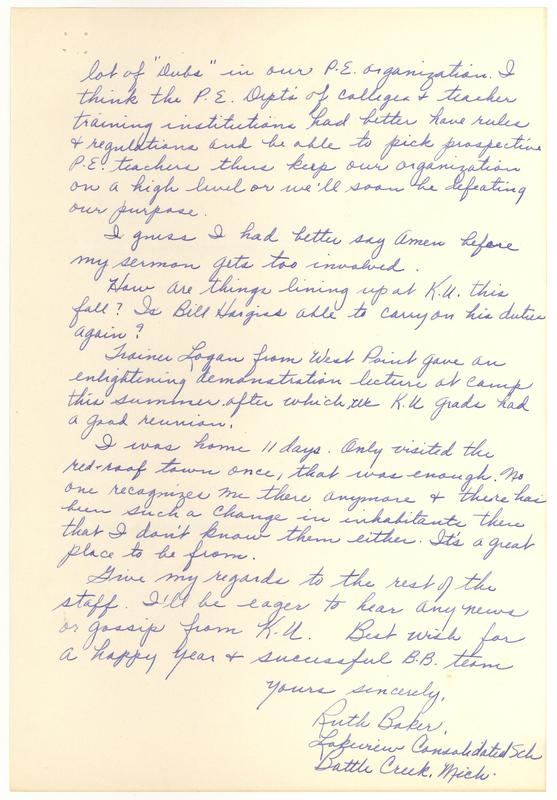 lot of "Dubs" in our P.E. organization. I
think the P.E. Dept's of colleges & teacher
training institutions had better have rules
& regulations and be able to pick prospective
P.E. teachers thus keep our organization
on a high level or we'll soon be defeating
our purpose.
I guess I had better say Amen before
my sermon gets too involved.
How are things lining up at K.U. this
fall? Is Bill Hargiss able to carry on his duties
again?
Trainer Logan from West Point gave an
enlightening demonstration lecture at camp
this summer after which we K.U grads had
a good reunion.
I was home 11 days. Only visited the
red-roof town once, that was enough. No
one recognizes me there anymore & there has
been such a change in inhabitants there
that I don't know them either. It's a great
place to be from.
Give my regards to the rest of the
staff. I'll be eager to hear any news
or gossip from K.U. Best wish for
a happy year & successful B.B. team
Yours sincerely,
Ruth Baker.
Lakeview Consolidated Sch
Battle Creek, Mich.